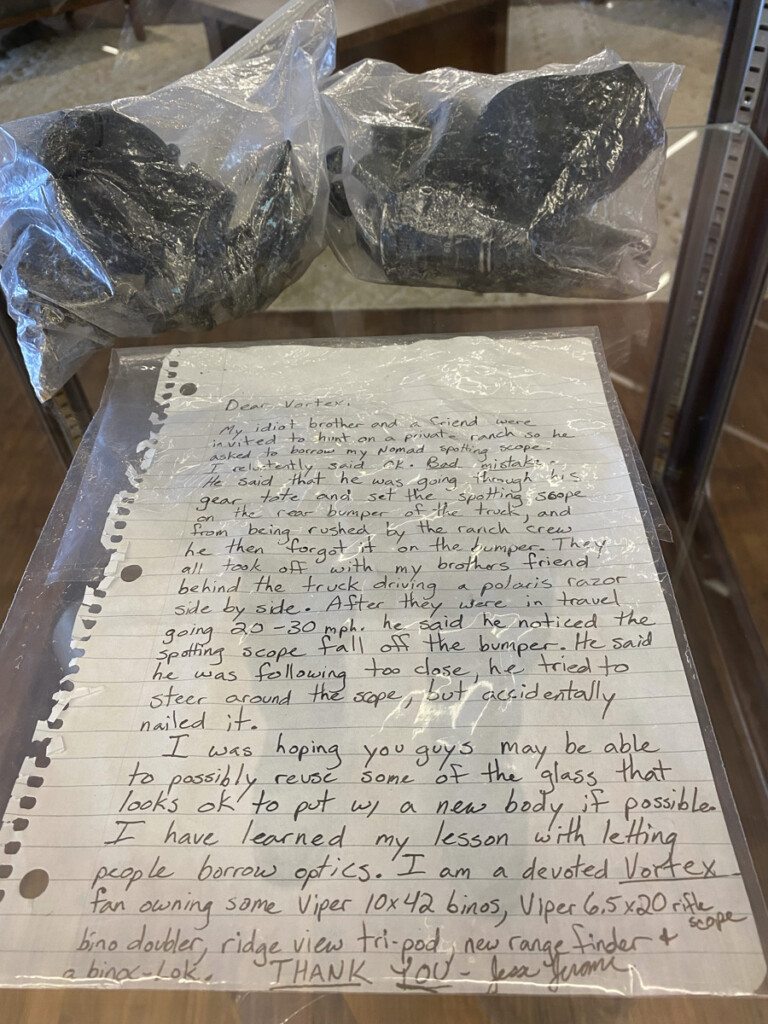 Dear Vortex,
My idiot brother and a friend were
invited to hunt on a private ranch so he
asked to borrow my Nomad spotting scope.
I relutently said ok. Bad mistake.
He said that he was going through his
gear tote and set the spotting scope
on the rear bumper of the truck, and
from being rushed by the ranch crew
he then forgot it on the bumper. They
all took off with my brothers friend
behind the truck driving a polaris razor
side by side. After they were in travel
going 20-30 mph. he said he noticed the
spotting scope fall off the bumper. He said
he was following too close, he tried to
steer around the scope, but accidentally
nailed it.
I was hoping you guys may be able
to possibly reuse some of the glass that
looks ok to put w/ a new body if possible.
I have learned my lesson with letting
people borrow optics. I am a devoted Vortex
fan owning some Viper 10x42 binos, Viper 6.5x20 rifle scope
bino doubler, ridge view tri-pod, new range finder +
a binoc-lok. THANK YOU -